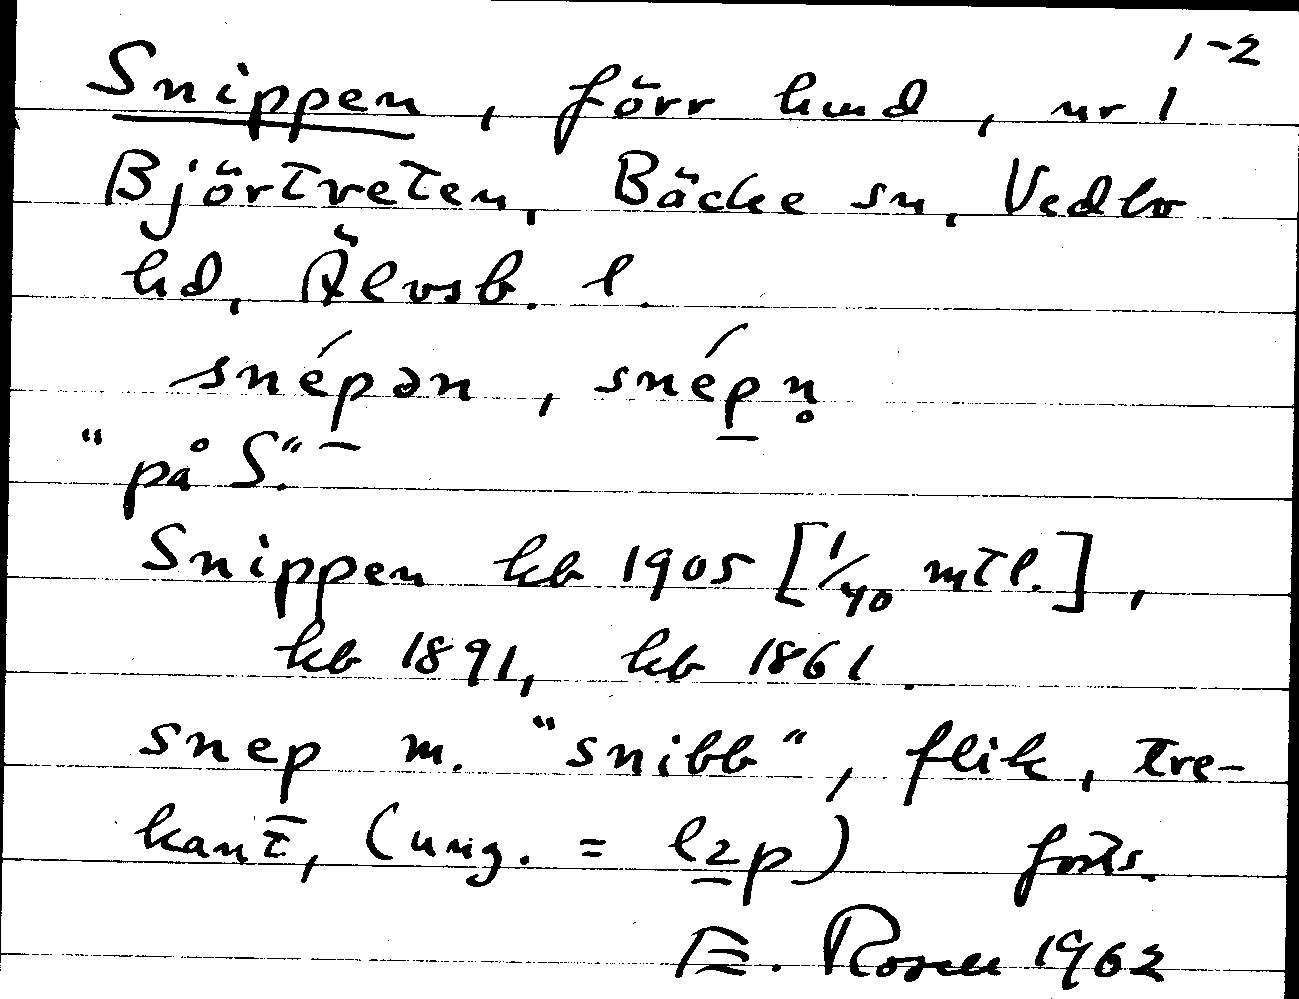 1-2
Snippen, förr hmd, nr 1
Björtveten, Bäcke sn, Vedbo
hd, Älvsb. l.
snépən, snép̲n̥
"på S."
Snippen kb 1905 [1/40 mtl.],
kb 1891, kb 1861.
snep m. "snibb", flik, tre-
kant, (ung. = p) forts.
E. Rosell 1962